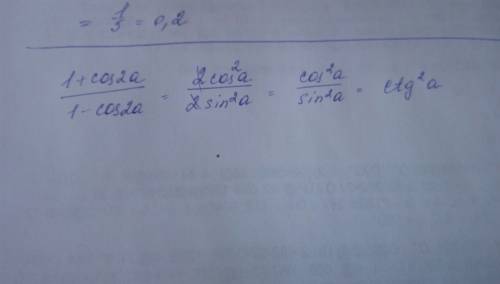 = 1/5 = 0,2
(1+cos2a)/(1-cos2a) = (2cos²a)/(2sin²a) = (cos²a)/(sin²a) = ctg²a